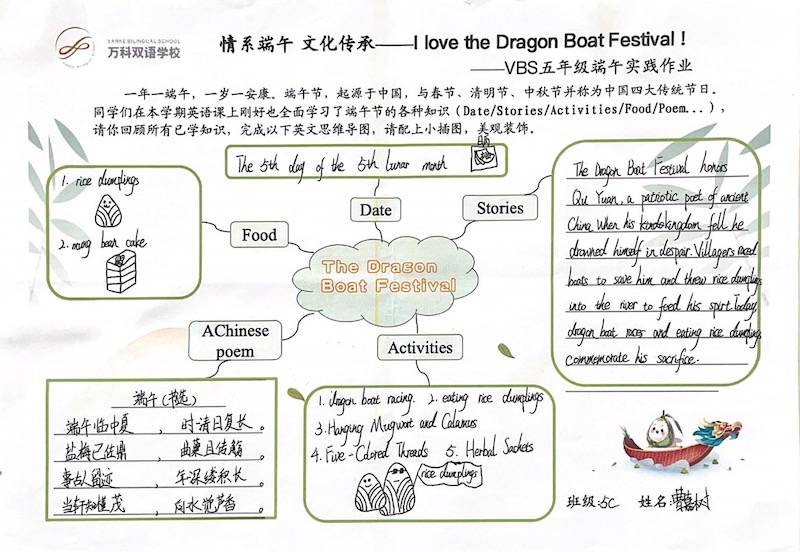 VANKE BILINGUAL SCHOOL
万科双语学校
情系端午 文化传承——I love the Dragon Boat Festival！
——VBS五年级端午实践作业
一年一端午，一岁一安康。端午节，起源于中国，与春节、清明节、中秋节并称为中国四大传统节日。
同学们在本学期英语课上刚好也全面学习了端午节的各种知识（Date/Stories/Activities/Food/Poem...），
请你回顾所有已学知识，完成以下英文思维导图，请配上小插图，美观装饰。
The 5th day of the 5th lunar month
Date
Stories
Food
1. rice dumplings
2. mung bean cake
The Dragon
Boat Festival
The Dragon Boat Festival honors
Qu Yuan, a patriotic poet of ancient
China. When his kingdom fell he
drowned himself in despair. Villagers raced
boats to save him and threw rice dumplings
into the river to feed his spirt. Today,
dragon boat races and eating rice dumplings
commemorate his sacrifice.
AChinese
poem
端午(节选)
端午临中夏，时清日复长。
盐梅已佐鼎，曲糵且传觞。
事古人留迹，年深缕积长。
当轩知槿茂，向水觉芦香。
Activities
1. dragon boat racing. 2. eating rice dumplings
3. Hanging Mugwort and Calamus
4. Five-Colored Threads 5. Herbal Sachets
rice dumplings
班级:5C 姓名:曹嘉树